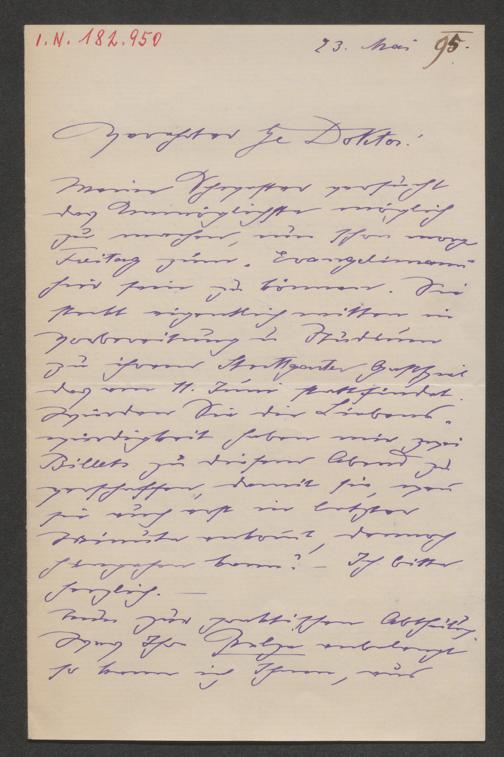 I. N. 182.950
23. Mai 95.
Verehrter He Doktor!
Meine Schwester versucht
das Unmöglichste möglich
zu machen, um schon morgen
Freitag zum „Evangelimann"
hier sein zu können. Sie
steckt eigentlich mitten in
Vorbereitung u Studium
zu ihrem Stuttgarter Gastspiel
das am 11. Juni stattfindet.
Würden Sie die Liebens-
würdigkeit haben mir zwei
Billets zu diesem Abend zu
verschaffen, damit sie, wenn
sie auch erst in letzter
Minute ankomt, dennoch
hingehen kann? – Ich bitte
herzlich. –
Was zur praktischen
Ihr anbelangt
so kann ich Ihnen, nur